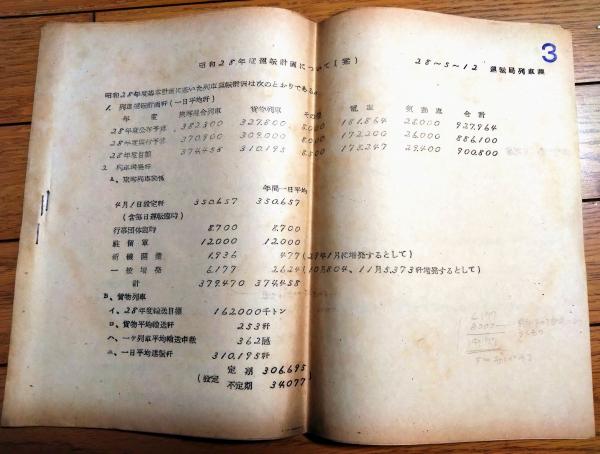 3
昭和28年度運転計画について(案) 28~5~12 運転局列車課
昭和28年度基本計画に基いた列車運転計画は次のとおりである。
1. 列車運転計画粁(一日平均粁)
年度 旅客混合列車 貨物列車 その他 電車 気動車 合計
28年度公約予算 382,300 327,800 8,000 181,864 28,000 927,964
28年度実行予算 370,900 309,000 8,000 172,200 26,000 886,100
28年度目標 374,458 310,195 8,500 178,247 29,400 900,800
2. 列車
A、旅客列車関係
年間一日平均
4月1日設定粁 350,657 350,657
(含毎日運転臨時)
行事団体臨時 8,700 8,700
駐留軍 12,000 12,000
新線開業 1,936 477 (29年1月に増発するとして)
一般増発 6,177 2,624 (10月804、11月5,373粁増発するとして)
計 379,470 374,458
B、貨物列車
イ、28年度輸送目標 162,000千トン
ロ、貨物平均輸送粁 253粁
ハ、一ケ列車平均輸送屯数 362屯
ニ、一日平均運転粁 310,195粁
(設定 定期 306,695
不定期 34,077)
6,177